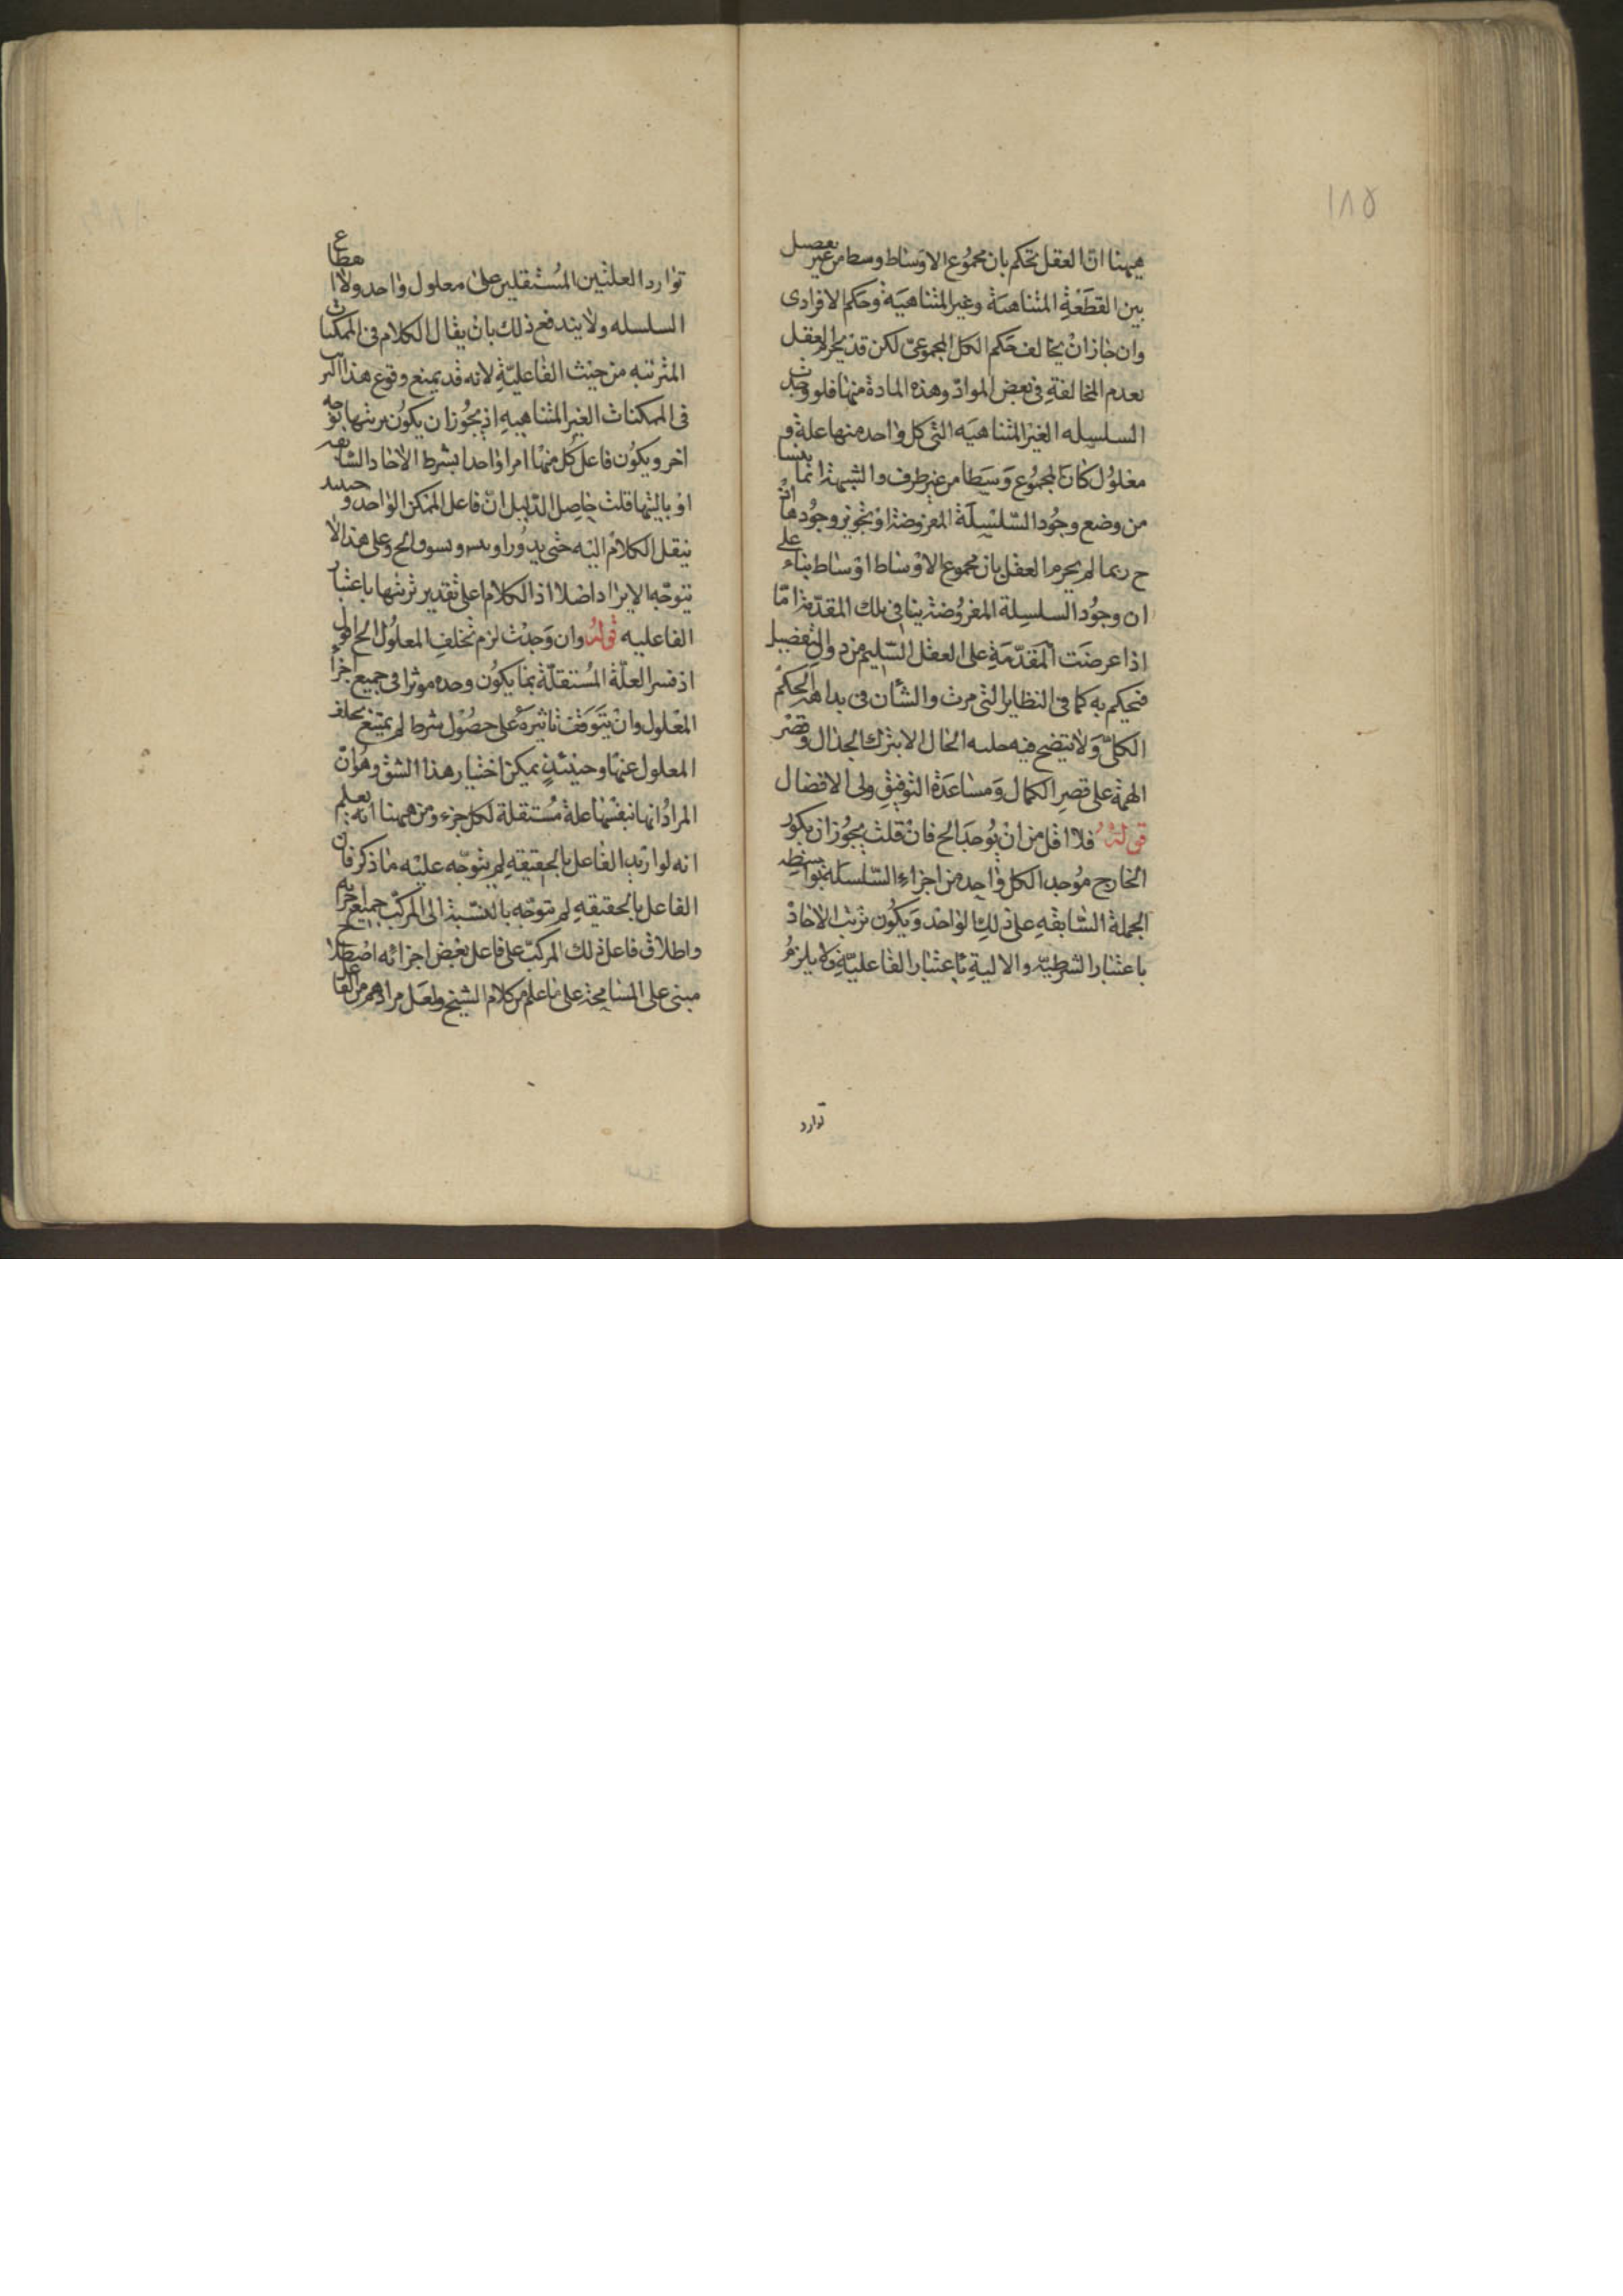 ١٨٥
ههنا ان العقل يحكم بان مجموع الاوساط وسط من غير تفصيل
بين القطعة المتناهية وغير المتناهية وحكم الافرادى
وان جاز ان يخالف حكم الكل المجموعى لكن قد يجزم العقل
بعدم المخالفة فى بعض المواد وهذه المادة منها فلو وجدت
السلسله الغير المتناهيه التى كل واحد منها علة و
معلول كان المجموع وسطا من غير طرف والشبهة انما ينشا
من وضع وجود السلسلة المفروضة او تجويز وجودها اذ
ح ربما لم يجزم العقل بان مجموع الاوساط اوساط بناء على
ان وجود السلسلة المفروضة ينافى تلك المقدمة اما
اذا عرضت المقدمة على العقل السليم من والتفصيل
فيحكم به كما فى النظاير التى مرت والشان فى بداهة الحكم
الكلى ولا يتضح فيه الحال الا بترك الجدال وقصر
الهمة على قصر الكمال ومساعدة التوفيق ولى الافضال
قوله فلا اقل من ان يوجد الخ فان قلت يجوز ان يكون
الخارج موجد الكل واحد من اجزاء السلسلة بواسطة
الجملة السابقه على ذلك الواحد ويكون ترتب الاحاد
باعتبار الشرطية والالية باعتبار الفاعلية ولا يلزم
توارد
توارد العلتين المستقلين على معلول واحد ولا انقطاع
السلسله ولا يندفع ذلك بان يقال الكلام فى الممكنات
المترتبه من حيث الفاعلية لانه قد يمنع وقوع هذا الترتيب
فى الممكنات الغير المتناهيه اذ يجوز ان يكون ترتبها بوجه
اخر ويكون فاعل كل منها امرا واحدا بشرط الاحاد السابقه
او باليتها قلت حاصل الدليل ان فاعل الممكن الواحد و حينئذ
ينقل الكلام اليه حتى يدور او ويسوق الخ وعلى هذا لا
يتوجه الايراد اصلا اذ الكلام على تقدير ترتبها باعتبار
الفاعليه قوله وان وجدت لزم تخلف المعلول الخ اقول
اذ فسر العلة المستقلة بما يكون وحده موثرا فى جميع اجزاء
المعلول وان يتوقف تاثيره على حصول شرط لم يمتنع تخلف
المعلول عنها وحينئذ يمكن اختيار هذا الشق وهو ان
المراد انها نفسها علة مستقلة لكل جزء ومن ههنا يعلم
انه لو اريد الفاعل بالحقيقه لم يتوجه عليه ما ذكر فان
الفاعل بالحقيقه لم يتوجه بالنسبة الى المركب جميع اجزائه
واطلاق فاعل ذلك المركب على فاعل بعض اجزائه اصطلاح
مبنى على المسامحة على ما علم من كلام الشيخ ولعل مرادهم من الفاعل